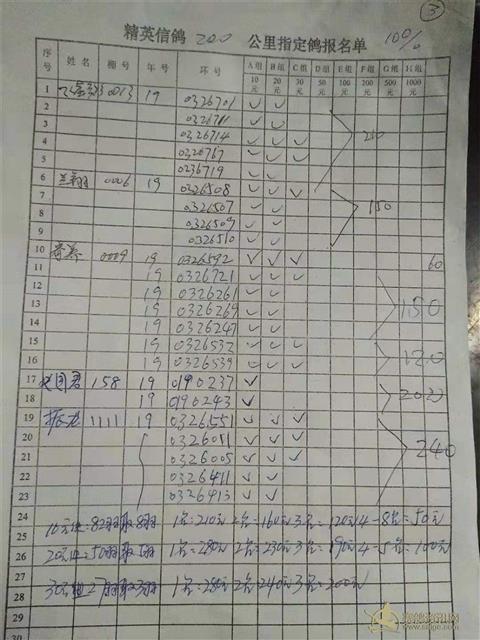 ③
精英信鸽 200 公里指定鸽报名单 10%
序号 姓名 棚号 年号 环号 A组 B组 C组 D组 E组 F组 G组 H组
10元 20元 30元 50元 100元 200元 500元 1000元
1 0013 19 0326701 ✓ ✓
2 0326711 ✓ ✓
3 0326714 ✓ ✓ ✓
4 0326767 ✓ ✓ ✓
5 0236719 ✓ ✓
6 0006 19 0326508 ✓ ✓ ✓
7 0326507 ✓ ✓
8 0326509 ✓ ✓
9 0326510 ✓ ✓ 150
10 0009 19 0326592 ✓ ✓ ✓ 60
11 19 0326721 ✓ ✓ ✓
12 19 0326261 ✓ ✓
13 19 0326269 ✓ ✓
14 19 0326247 ✓ ✓
15 19 0326532 ✓ ✓ ✓
16 19 0326539 ✓ ✓ ✓ 120
17 158 19 0190237 ✓
18 19 0190243 ✓
19 1111 19 0326551 ✓ ✓ ✓
20 0326011 ✓ ✓ ✓
21 0326005 ✓ ✓ ✓ 240
22 0326411 ✓ ✓
23 0326413 ✓ ✓
24
25 10元组=82羽取8羽 1名=210元 2名=160元 3名=120元 4-8名=50元
26 20元组=50羽取5羽 1名=280元 2名=230元 3名=190元 4-5名=100元
27
28 30元组=27羽取3羽 1名=280元 2名=240元 3名=200元